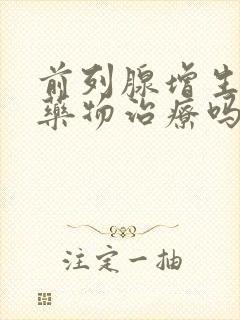 前列腺增生
藥物治療吗
注定一抽